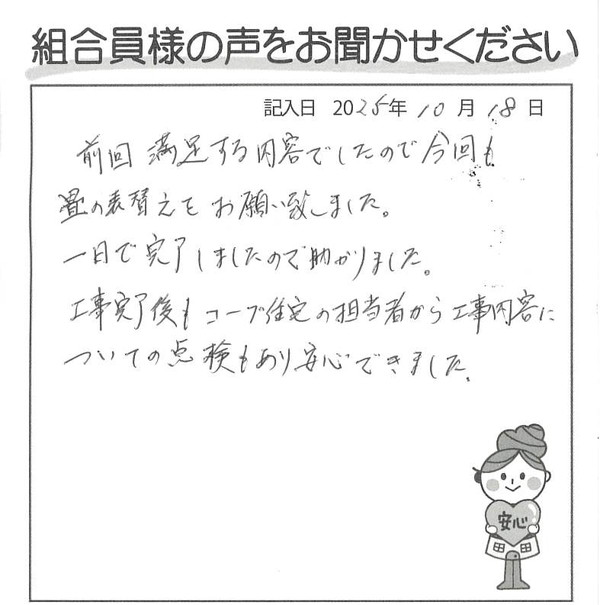 組合員様の声をお聞かせください
記入日 2025年 10月 18日
前回 満足する内容でしたので今回も
畳の表替えを お願い致しました。
一日で完了しましたので助かりました。
工事完了後も コープ住宅の担当者から工事内容に
ついての点検もあり安心できました。
安心